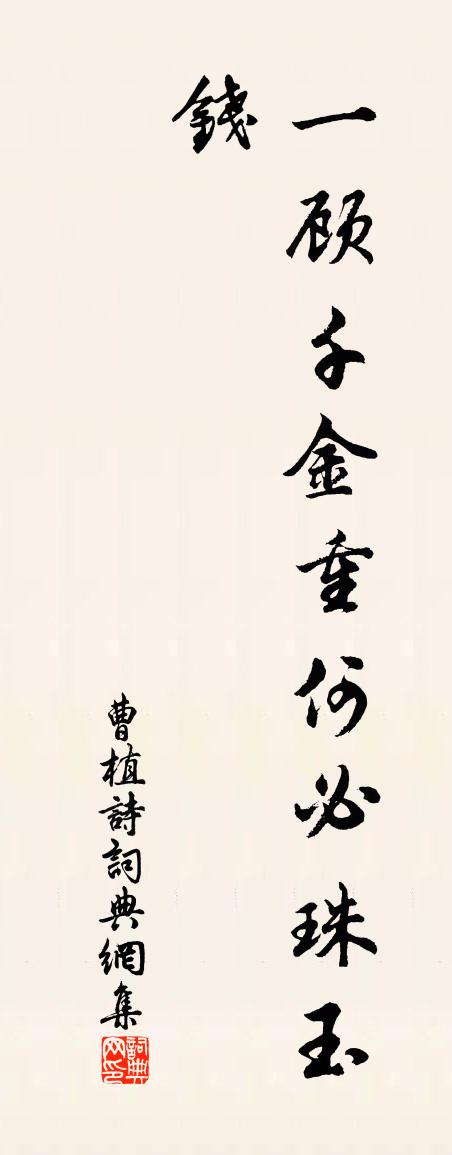 一顾千金重何必珠玉
錢
曹植詩詞典網集
詞典
网印